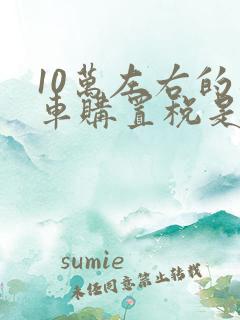 10萬左右的
車購置稅是
sumie
未任同意禁止轉載